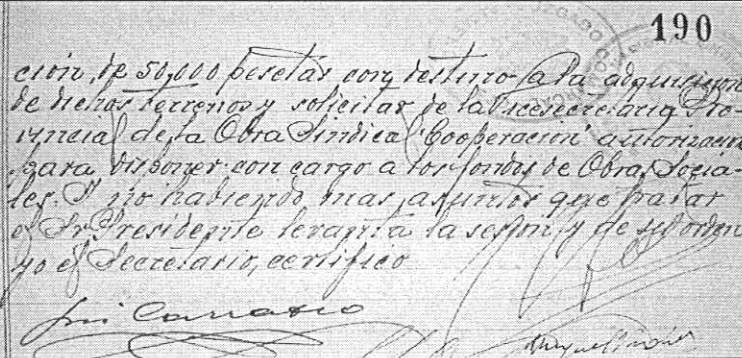 190
ción, de 50,000 pesetas con destino a la adquisición
de dichos terrenos y solicitar de la Vicesecretaria Pro-
vincial de la Obra Sindical "Cooperación" autorización
para disponer con cargo a los fondos de Obras Socia-
les. Y no habiendo mas asuntos que tratar
el Sr. Presidente levanta la sesión, y de su orden
yo el Secretario, certifico